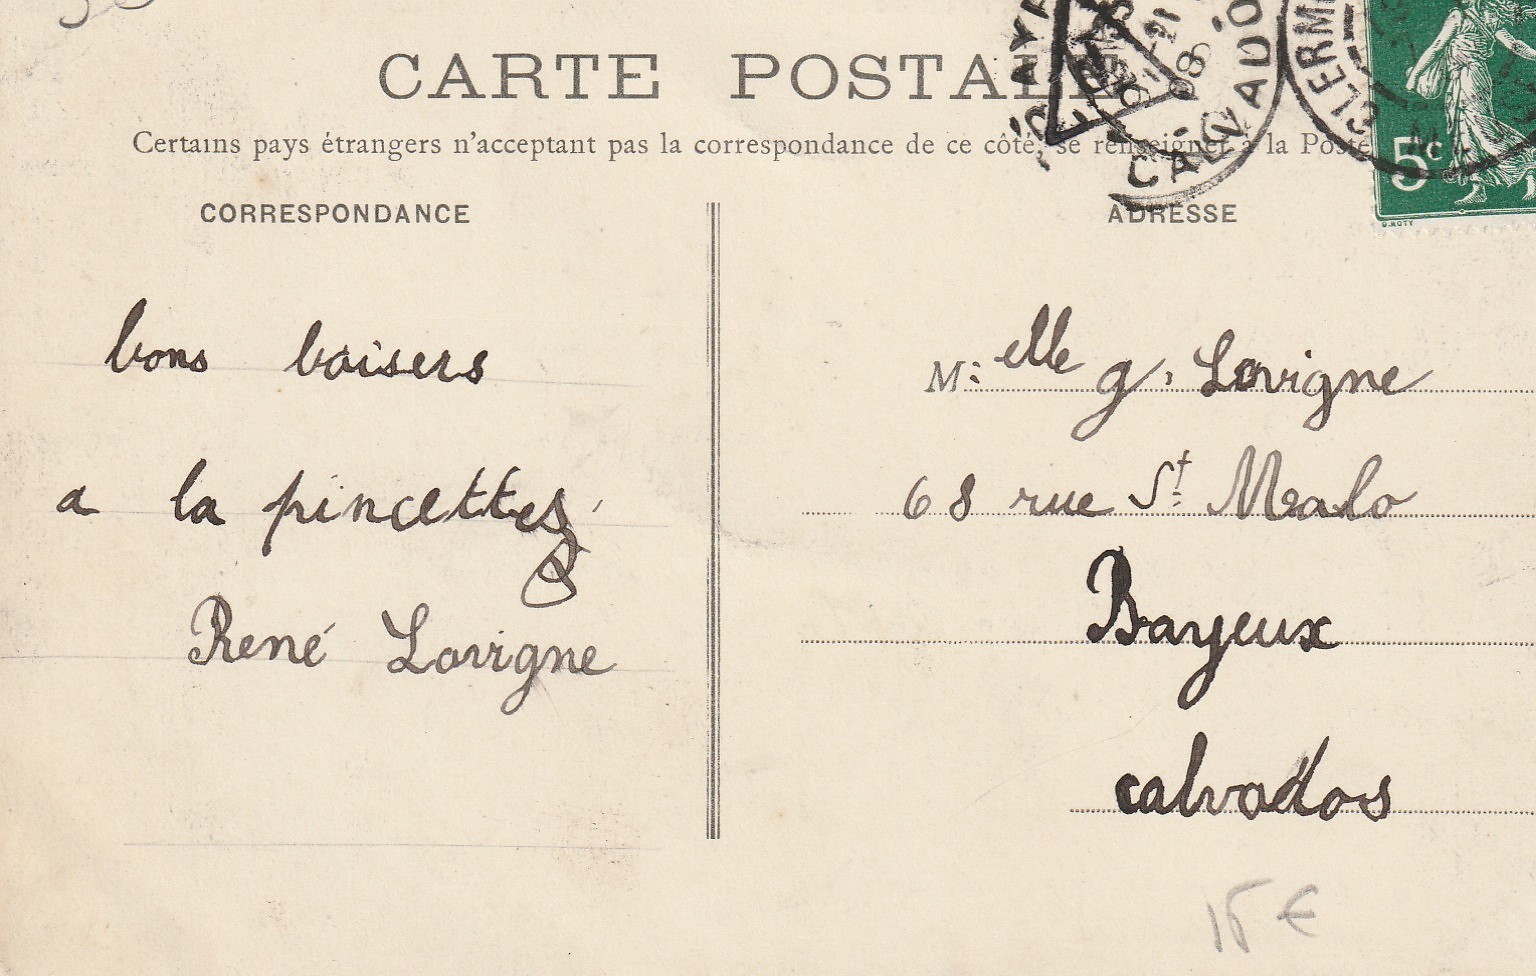 CARTE POSTALE
Certains pays étrangers n'acceptant pas la correspondance de ce côté, se renseigner à la Poste
CORRESPONDANCE
ADRESSE
bons baisers
a la pincettes
René Lavigne
M:elle g. Lavigne
68 rue St Malo
Bayeux
calvados
5c
CALVADOS
08
15 €